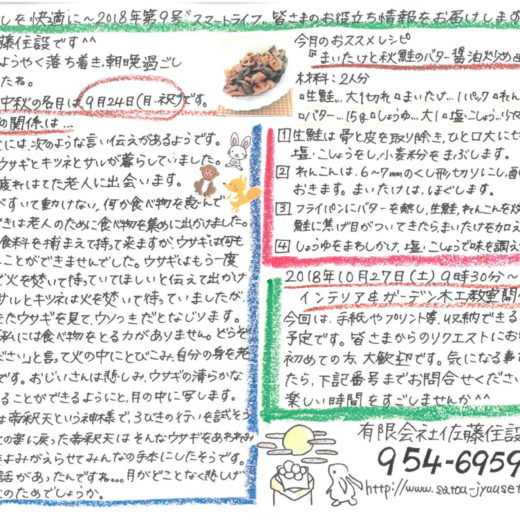 しを快適に～2018年第9号"スマートライフ"皆さまのお役立ち情報をお届けします
藤住設です^^
ようやく落ち着き、朝晩過ごし
たね。
中秋の名月は9月24日(月・祝)です。
の関係は…
には、次のような言い伝えがあるようです。
ウサギとキツネとサルが暮らしていました。
疲れはてた老人に出会います。
べすいて動けない、何か食べ物を恵んで
きは老人のために食べ物を集めに出かけました。
食料を捕まえて持って来ますが、ウサギは何も
ことができませんでした。ウサギはもう一度
で火を焚いて待っていてほしいと伝えて出かけ
サルとキツネは火を焚いて待っていましたが
たウサギを見て、ウソつきだとなじります。
私には食べ物をとる力がありません。どうぞ
ださい」と言って火の中にとびこみ、自分の身を老
です。おじいさんは悲しみ、ウサギの清らかな
ることができるようにと、月の中に写します。
は帝釈天という神様で、3びきの行いを試そう
の姿に戻った帝釈天はそんなウサギをあわれみ
よみがえらせてみんなの手本にしたそうです。
話があったんですね…月がどことなく悲しげ
のためでしょうか。
今月のおススメレシピ
まいたけと秋鮭のバター醤油炒め
材料：2人分
□生鮭…大1切れ □まいたけ…1パック □れん
□バター…15g □しょうゆ…大1 □塩・こしょう
1 生鮭は骨と皮を取り除き、ひと口大に
塩・こしょうをし、小麦粉をまぶします。
2 れんこんは、6～7mmのくし形切りにし、
おきます。まいたけは、ほぐします。
3 フライパンにバターを熱し、生鮭、れんこんを炒
鮭に焦げ目がついてきたらまいたけを加え
4 しょうゆをまわしかけ、塩・こしょうで味を調え
2018年10月27日(土)9時30分～
インテリア&ガーデン木工教室開
今回は、手紙やプリント等、収納できる
予定です。皆さまからのリクエストにお
初めての方、大歓迎です。気になる事
たら、下記番号までお問合せください
楽しい時間をすごしませんか^^
有限会社佐藤住設
954-6959
http://www.satou-jyuuset